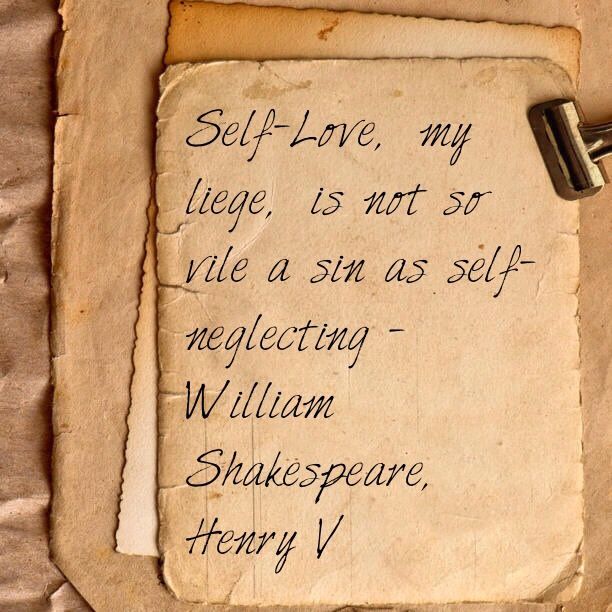 Self-Love, my
liege, is not so
vile a sin as self-
neglecting -
William
Shakespeare,
Henry V